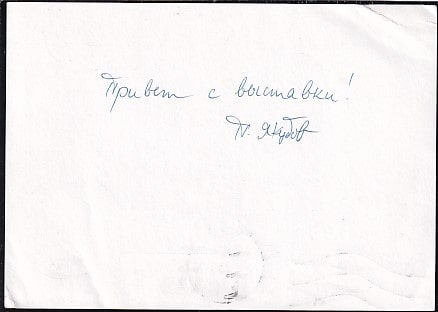 Привет с выставки!
П. Якубов